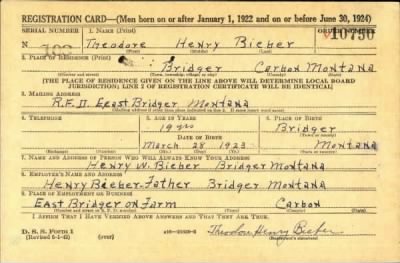 REGISTRATION CARD—(Men born on or after January 1, 1922 and on or before June 30, 1924)
SERIAL NUMBER 1. NAME (Print) ORDER NUMBER
N Theodore Henry Bieber 10750
(First) (Middle) (Last)
2. PLACE OF RESIDENCE (Print)
Bridger Carbon Montana
(Number and street) (Town, township, village, or city) (County) (State)
[THE PLACE OF RESIDENCE GIVEN ON THE LINE ABOVE WILL DETERMINE LOCAL BOARD
JURISDICTION; LINE 2 OF REGISTRATION CERTIFICATE WILL BE IDENTICAL]
3. MAILING ADDRESS
R.F.D. East Bridger Montana
(Mailing address if other than place indicated on line 2. If same insert word same)
4. TELEPHONE 5. AGE IN YEARS 6. PLACE OF BIRTH
19 yrs Bridger
DATE OF BIRTH (Town or county)
March 28 1923 Montana
(Exchange) (Number) (Mo.) (Day) (Yr.) (State or country)
7. NAME AND ADDRESS OF PERSON WHO WILL ALWAYS KNOW YOUR ADDRESS
Henry W. Bieber Bridger Montana
8. EMPLOYER'S NAME AND ADDRESS
Henry Bieber-Father Bridger Montana
9. PLACE OF EMPLOYMENT OR BUSINESS
East Bridger on Farm Carbon
(Number and street or R. F. D. number) (Town) (County) (State)
I AFFIRM THAT I HAVE VERIFIED ABOVE ANSWERS AND THAT THEY ARE TRUE.
D. S. S. Form 1
(Revised 6-9-42) (over) Theodore Henry Bieber
(Registrant's signature)